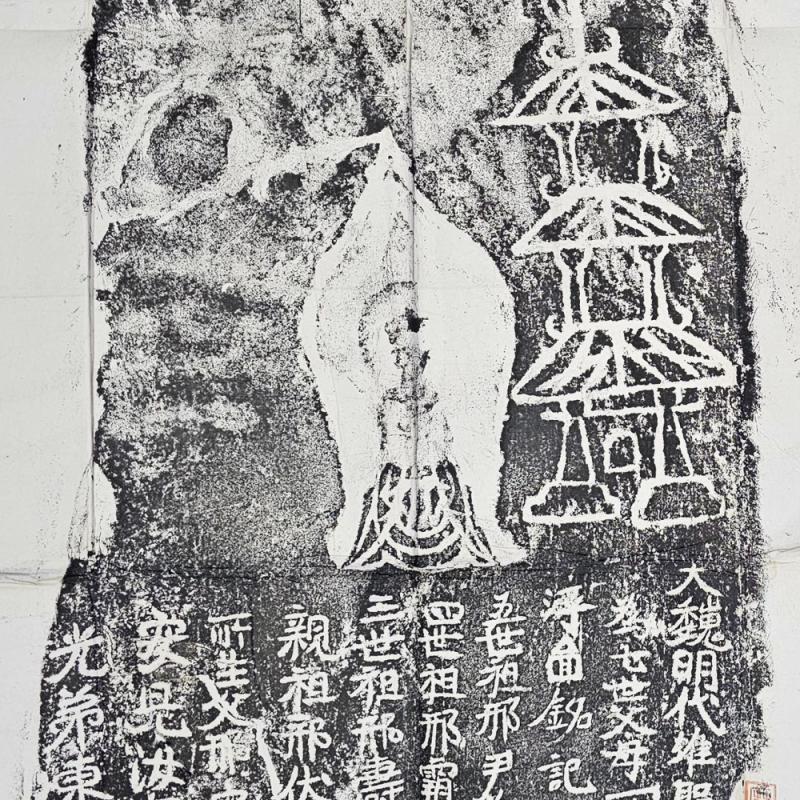 大魏明代唯聖
為七世父母
浮啚銘記
五世祖邢尹
四世祖邢霸
三世祖邢壽
親祖邢伏
所生父邢
安兄汝
光弟東